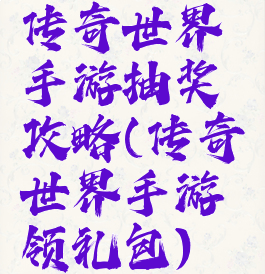 传奇世界
手游抽奖
攻略(传奇
世界手游
领礼包)